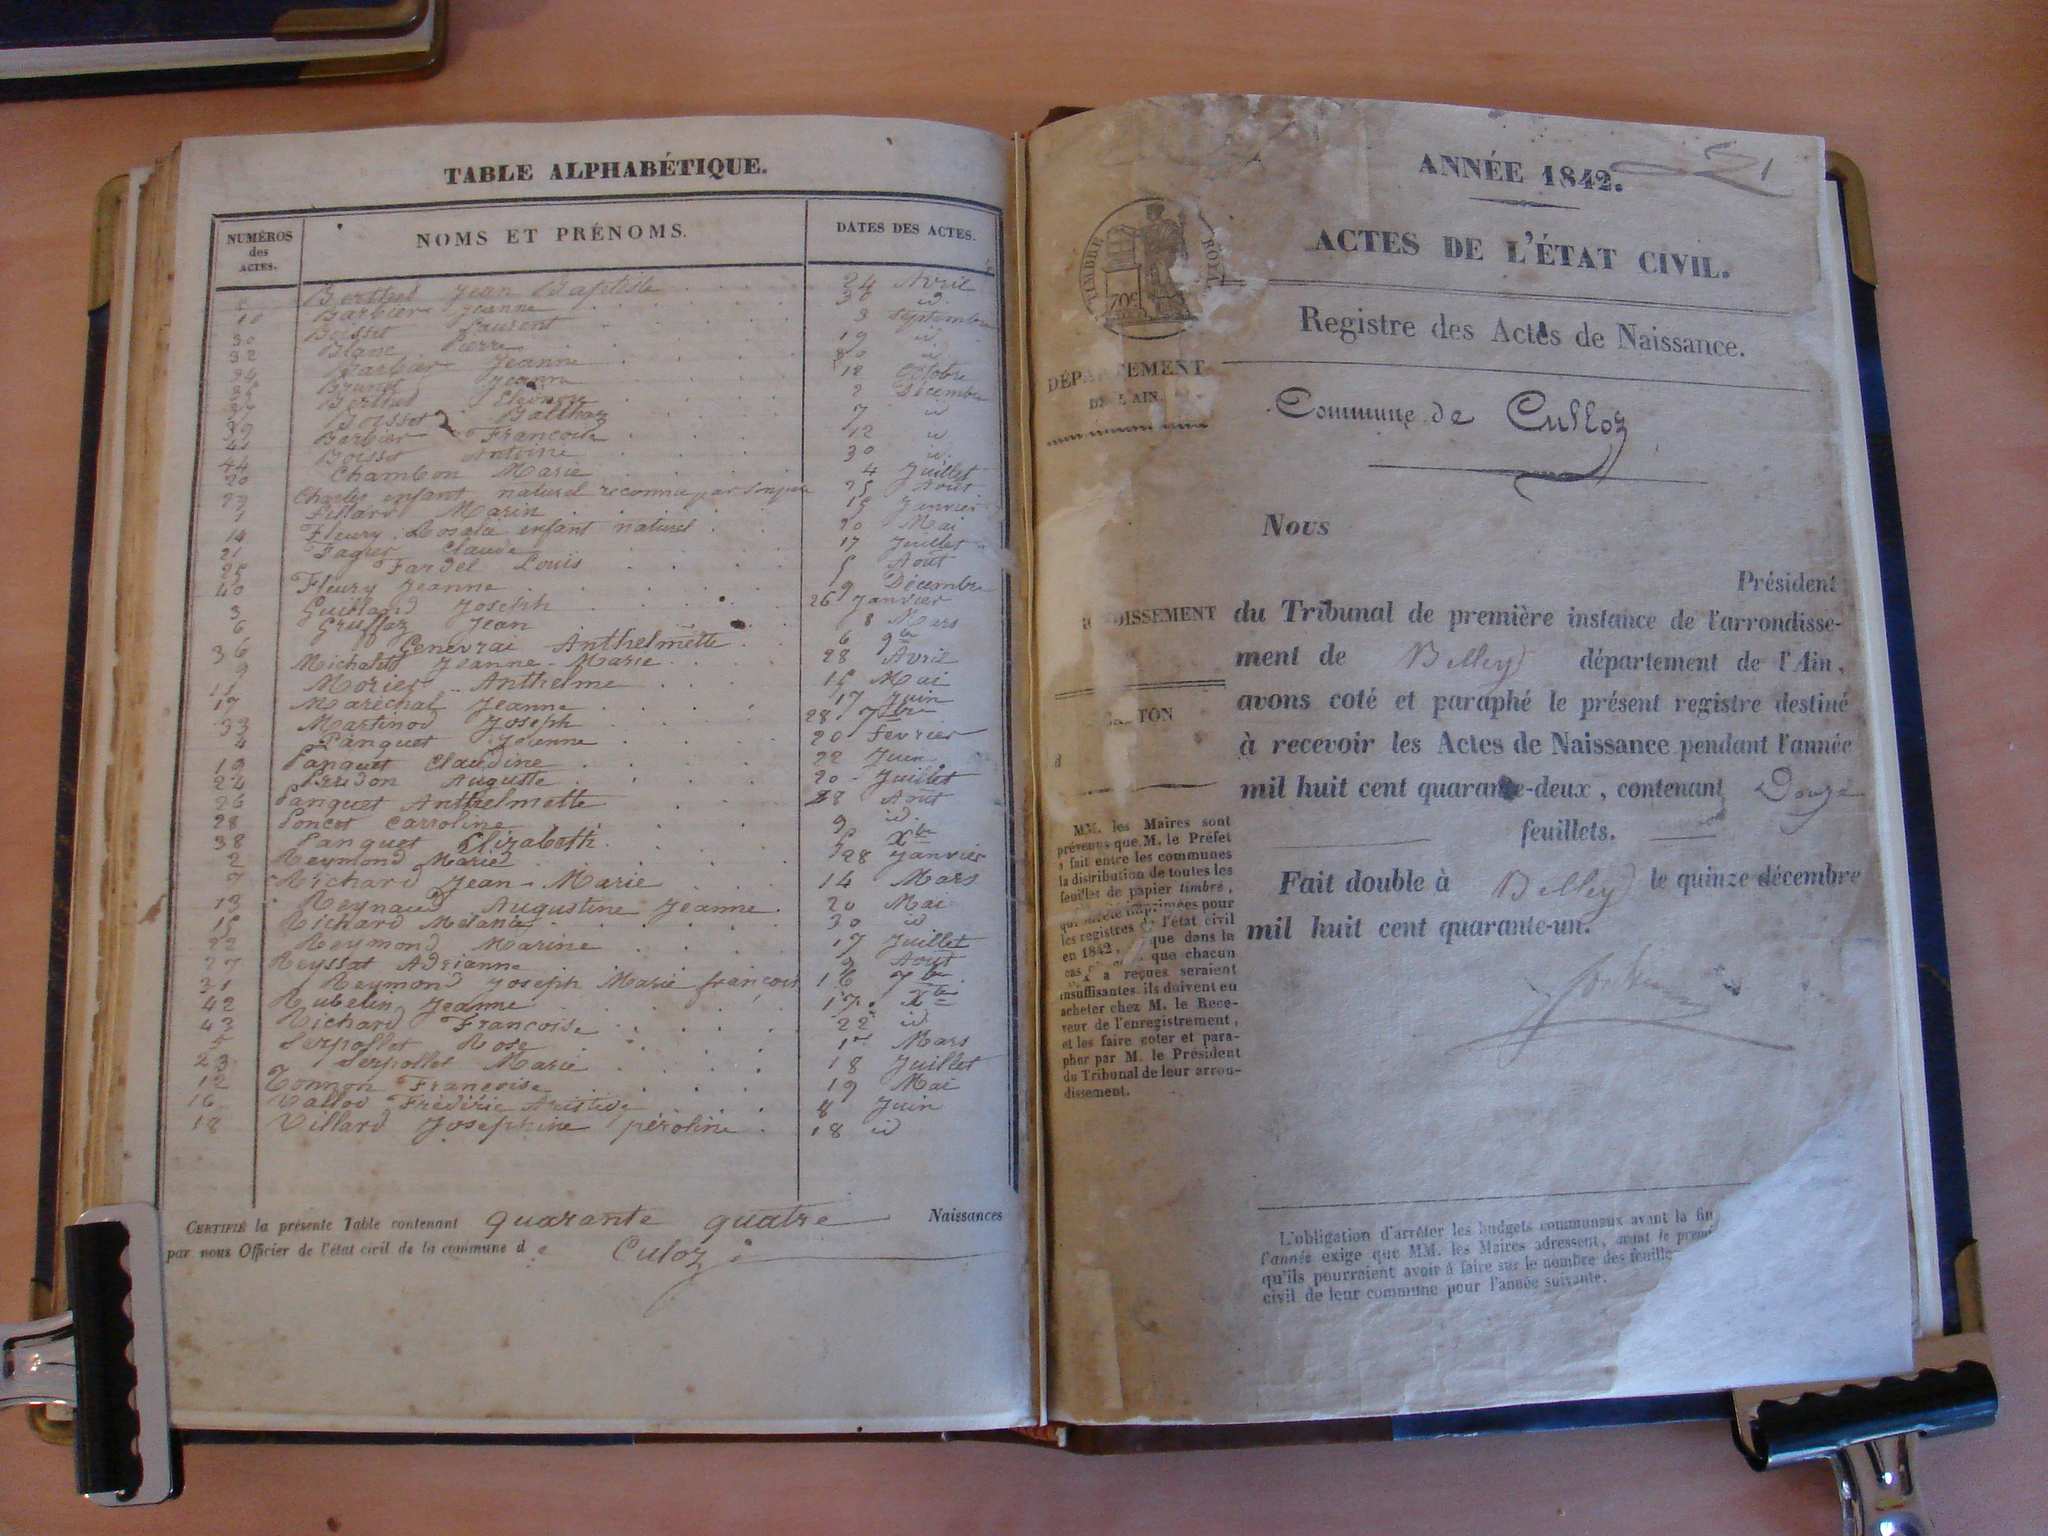 TABLE ALPHABÉTIQUE.
NUMÉROS des ACTES.
NOMS ET PRÉNOMS.
DATES DES ACTES.
Berthet Jean Baptiste 24 Avril
10 Barbier Jeanne 30 id.
30 Boisset Laurent 3 Septembre
32 Blanc Pierre 19 id
34 Barbier Jeanne 20 id
35 Brunet Jeanne 12 Octobre
37 Berthet Eléonore 2 Décembre
39 Boisset Balthaz 7 id
41 Barbier Françoise 12 id
44 Boisset Antoine 30 id.
20 Chambon Marie 4 Juillet
29 Charles enfant naturel reconnu par son père 25 Août
1 Fillard Marin 15 Janvier
14 Fleury Rosalie enfant naturel 20 Mai
21 Fagier Claude 17 Juillet
25 Fardel Louis 5 Août
40 Fleury Jeanne 9 Décembre
3 Guilland Joseph 26 Janvier
6 Gruffaz Jean 8 Mars
36 Genevrai Anthelmette 6 9bre
9 Michelett Jeanne-Marie 28 Avril
11 Morier Anthelme 15 Mai
17 Maréchal Jeanne 17 Juin
33 Martinod Joseph 28 7bre
4 Panguet Jeanne 20 fevrier
19 Panguet Claudine 22 Juin
24 Prudon Auguste 20 Juillet
26 Panguet Anthelmette 28 Août
28 Poncet Carroline 9 id.
38 Panguet Elizabeth 5 Xbre
2 Reymond Marie 28 Janvier
7 Richard Jean-Marie 14 Mars
13 Reynaud Augustine Jeanne 20 Mai
15 Richard Melanie 30 id
22 Reymond Marine 17 Juillet
27 Reyssat Adrianne 9 Aout
31 Reymond Joseph Marie françois 16 7bre
42 Rubelin Jeanne 17 Xbre
43 Richard Françoise 22 id
5 Serpollet Rose 1er Mars
23 Serpollet Marie 18 Juillet
12 Tonnon Françoise 19 Mai
16 Vallod Frédéric Aristide 8 Juin
18 Villard Josephine péroline 18 id
CERTIFIÉ la présente Table contenant quarante quatre Naissances
par nous Officier de l'état civil de la commune de Culoz
ANNÉE 1842.
TIMBRE ROYAL
70c
ACTES DE L'ÉTAT CIVIL.
Registre des Actes de Naissance.
DÉPARTEMENT
DE L'AIN.
Commune de Culloz
Nous
Président
du Tribunal de première instance de l'arrondisse-
ment de Belley département de l'Ain,
avons coté et paraphé le présent registre destiné
à recevoir les Actes de Naissance pendant l'année
mil huit cent quarante-deux, contenant Douze
feuillets.
Fait double à Belley le quinze décembre
mil huit cent quarante-un.
DISSEMENT
TON
MM. les Maires sont
prévenus que M. le Préfet
a fait entre les communes
la distribution de toutes les
feuilles de papier timbré,
imprimées pour
les registres de l'état civil
en 1842, que dans le
cas que chacun
a reçues seraient
insuffisantes, ils doivent en
acheter chez M. le Rece-
veur de l'enregistrement,
et les faire coter et para-
pher par M. le Président
du Tribunal de leur arron-
dissement.
L'obligation d'arrêter les budgets communaux avant la fin
l'année exige que MM. les Maires adressent, avant le premi
qu'ils pourraient avoir à faire sur le nombre des feuille
civil de leur commune pour l'année suivante.